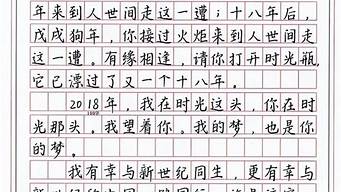 年来到人世间走这一遭；十八年后，
戊戌狗年，你接过火炬来到人世间走
这一遭。有缘相逢，请你打开时光瓶，
它已漂过了又一个十八年。
2018年，我在时光这头，你在时
光那头。我望着你。我的梦，也是你
的梦。
我有幸与新世纪同生，更有幸与